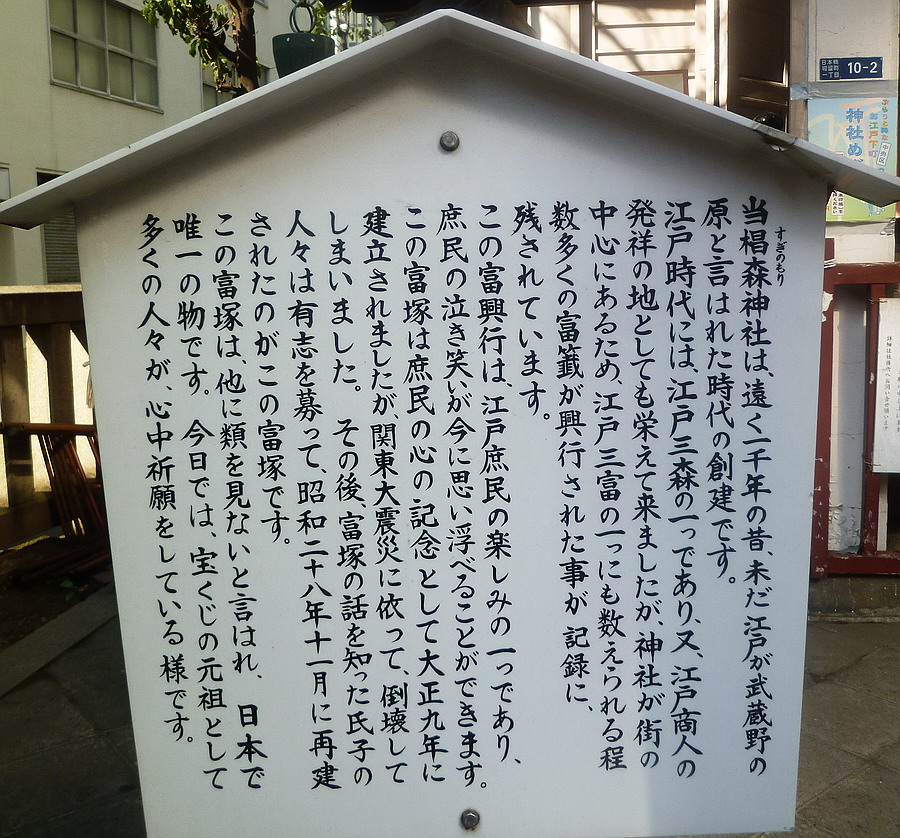 当椙森神社は、遠く一千年の昔、未だ江戸が武蔵野の
すぎのもり
原と言はれた時代の創建です。
江戸時代には、江戸三森の一つであり、又、江戸商人の
発祥の地としても栄えて来ましたが、神社が街の
中心にあるため、江戸三富の一つにも数えられる程
数多くの富籤が興行された事が記録に、
残されています。
この富興行は、江戸庶民の楽しみの一つであり、
庶民の泣き笑いが今に思い浮べることができます。
この富塚は庶民の心の記念として大正九年に
建立されましたが、関東大震災に依って、倒壊して
しまいました。その後、富塚の話を知った氏子の
人々は有志を募って、昭和二十八年十一月に再建
されたのがこの富塚です。
この富塚は、他に類を見ないと言はれ、日本で
唯一の物です。今日では、宝くじの元祖として
多くの人々が、心中祈願をしている様です。
日本橋
堀留町
一丁目
10-2
ぶらりと粋な
お江戸下町
中央区
神社め